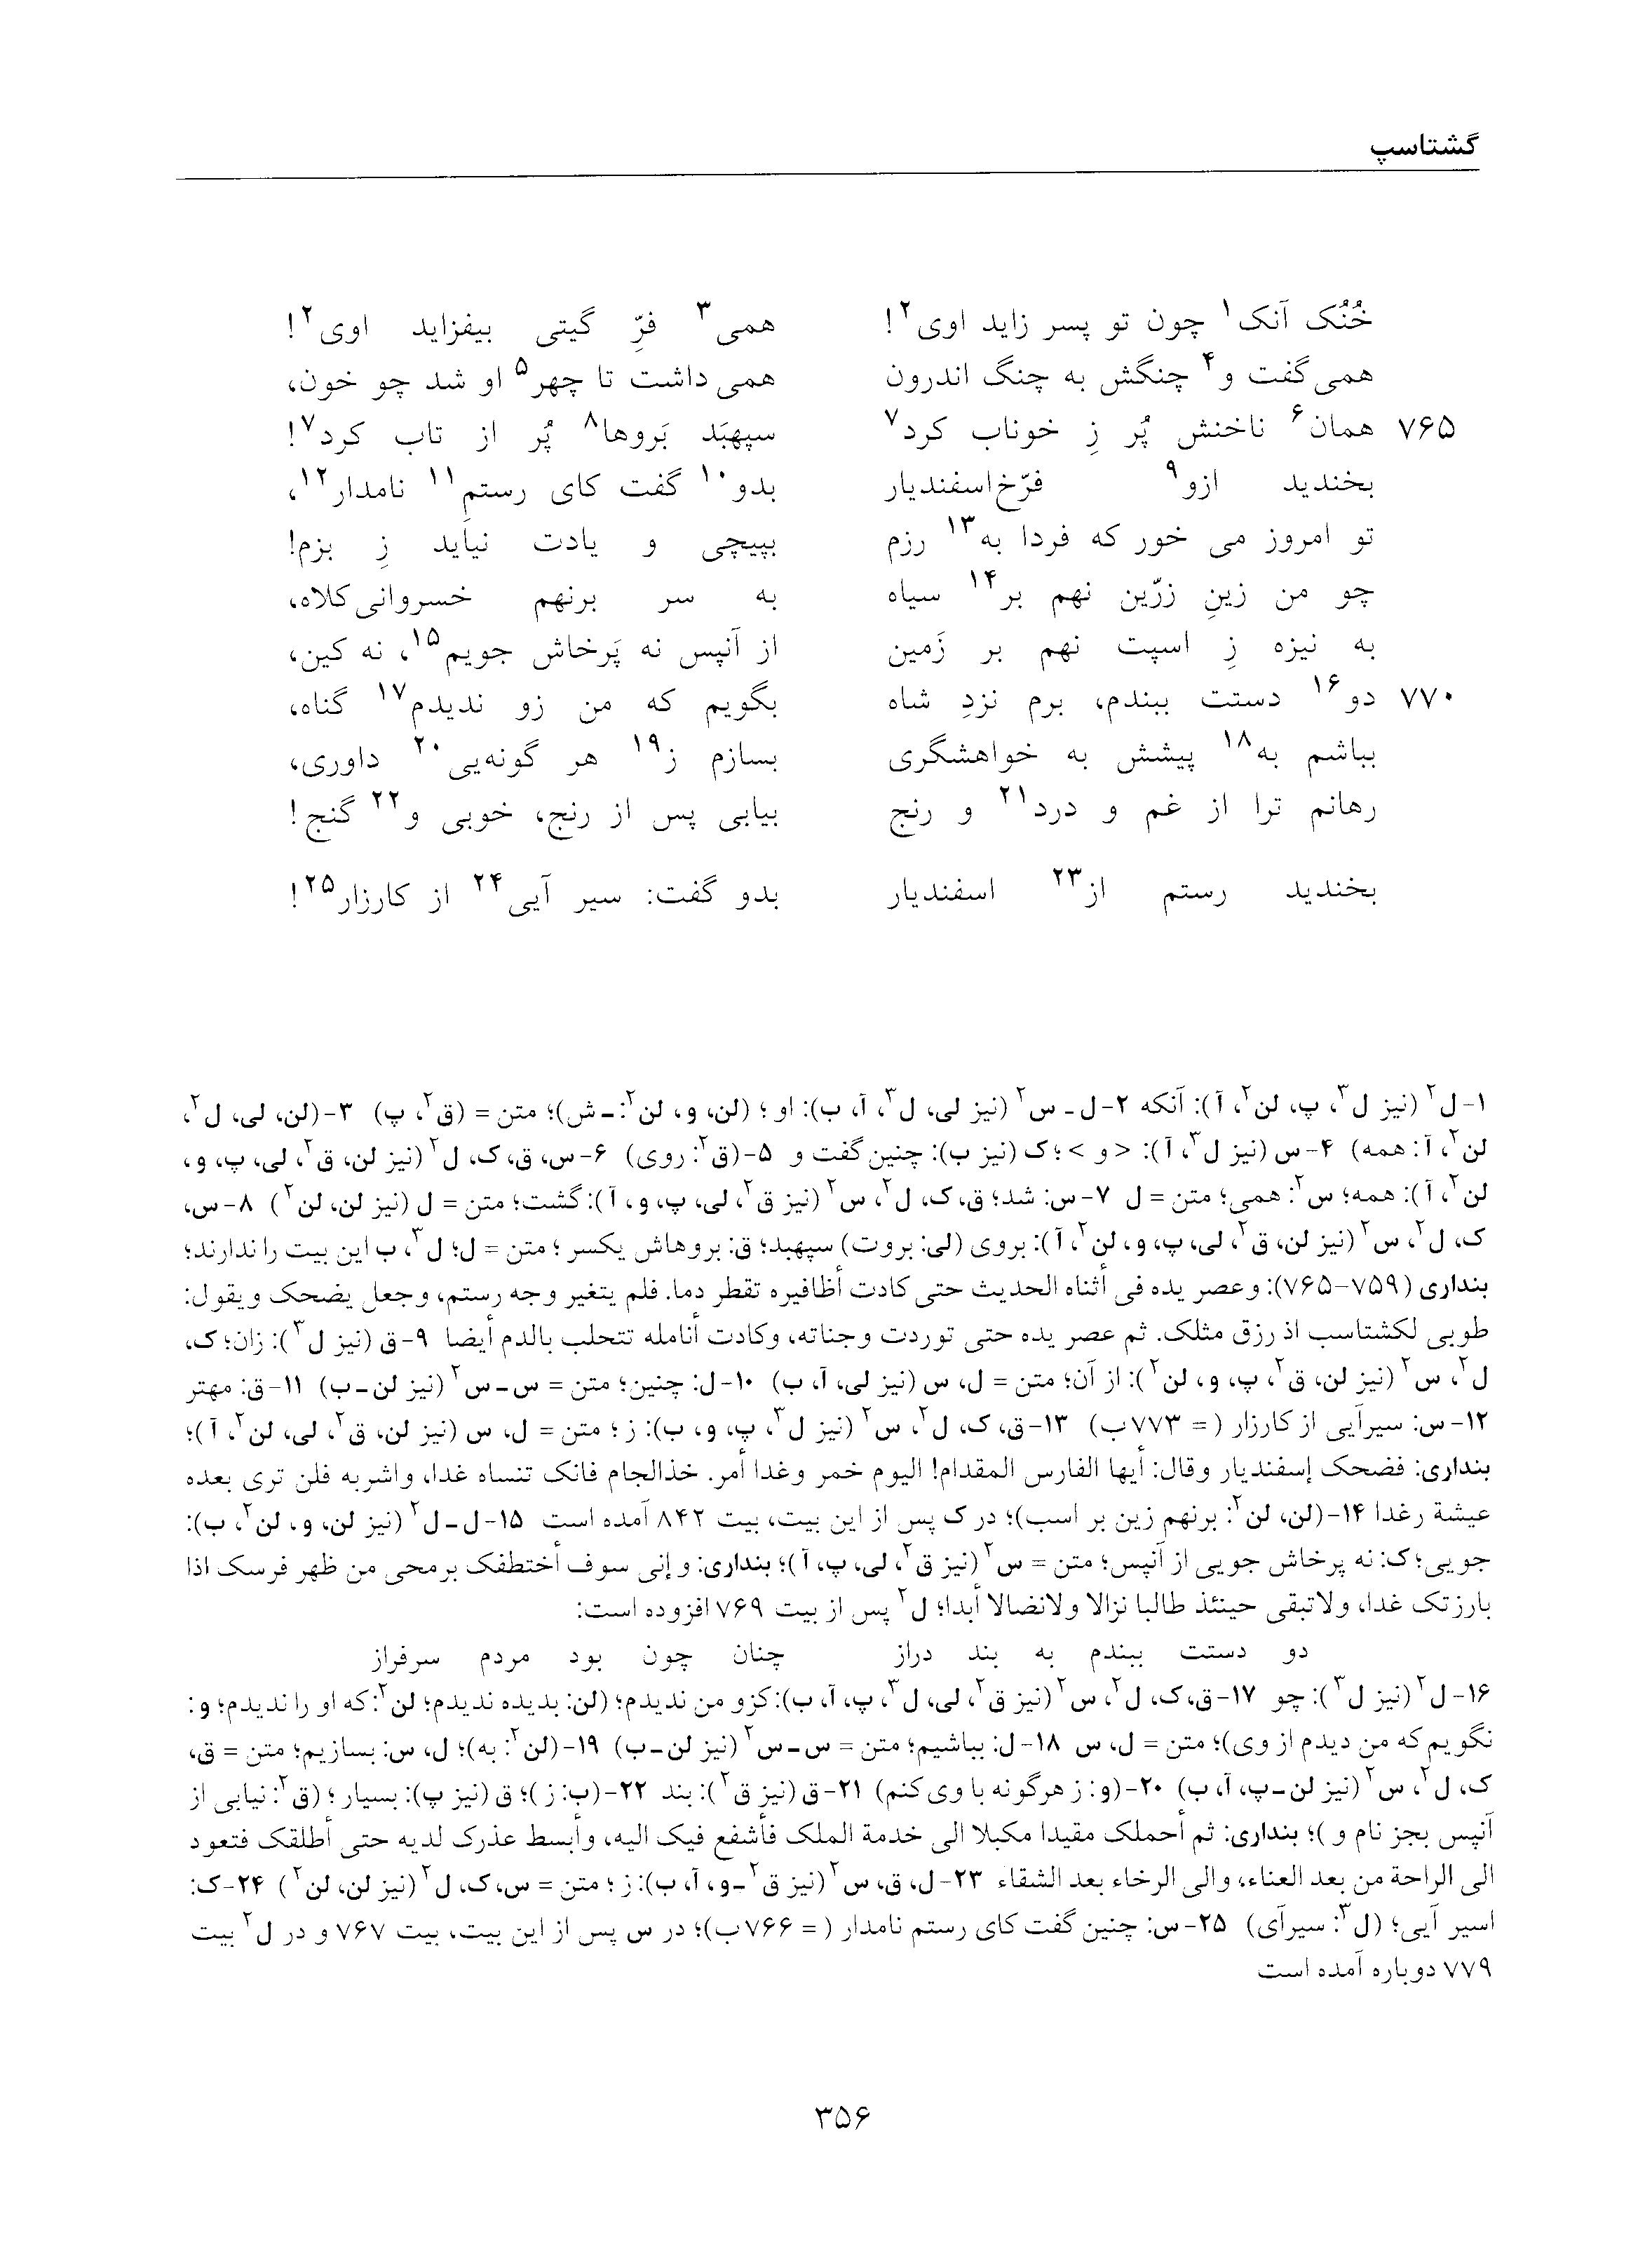 گشتاسپ
خُنُک آنک۱ چون تو پسر زاید اوی۲! همی۳ فرِّ گیتی بیفزاید اوی۲!
همی‌گفت و۴ چنگش به چنگ اندرون همی‌داشت تا چهر۵ او شد چو خون،
۷۶۵ همان۶ ناخنش پُر زِ خوناب کرد۷ سپهبَد بَروها۸ پُر از تاب کرد۷!
بخندید ازو۹ فرّخ‌اسفندیار بدو۱۰ گفت کای رستمِ۱۱ نامدار۱۲،
تو امروز می خور که فردا به۱۳ رزم بپیچی و یادت نیاَید زِ بزم!
چو من زینِ زرّین نهم بر۱۴ سیاه به سر برنهم خسروانی‌کلاه،
به نیزه زِ اسپت نهم بر زَمین از آنپس نه پَرخاش جویم۱۵، نه کین،
۷۷۰ دو۱۶ دستت ببندم، برم نزدِ شاه بگویم که من زو ندیدم۱۷ گناه،
بباشم به۱۸ پیشش به خواهشگری بسازم ز۱۹ هر گونه‌یی۲۰ داوری،
رهانم ترا از غم و درد۲۱ و رنج بیابی پس از رنج، خوبی و۲۲ گنج!
بخندید رستم از۲۳ اسفندیار بدو گفت: سیر آیی۲۴ از کارزار۲۵!
۱-ل۲ (نیز ل۳، پ، لن۲، آ): آنکه ۲-ل-س۲ (نیز لی، ل۳، آ، ب): او؛ (لن، و، لن۲: -ش)؛ متن = (ق۲، پ) ۳-(لن، لی، ل۲،
لن۲، آ: همه) ۴-س (نیز ل۳، آ): <و>؛ ک (نیز ب): چنین گفت و ۵-(ق۲: روی) ۶-س، ق، ک، ل۲ (نیز لن، ق۲، لی، پ، و،
لن۲، آ): همه؛ س۲: همی؛ متن = ل ۷-س: شد؛ ق، ک، ل۲، س۲ (نیز ق۲، لی، پ، و، آ): گشت؛ متن = ل (نیز لن، لن۲) ۸-س،
ک، ل۲، س۲ (نیز لن، ق۲، لی، پ، و، لن۲، آ): بروی (لی: بروت) سپهبد؛ ق: بروهاش یکسر؛ متن = ل؛ ل۳، ب این بیت را ندارند؛
بنداری (۷۵۹-۷۶۵): وعصر یده فی أثناه الحدیث حتی کادت أظافیره تقطر دما. فلم یتغیر وجه رستم، وجعل یضحک ویقول:
طوبی لکشتاسب اذ رزق مثلک. ثم عصر یده حتی توردت وجناته، وکادت أنامله تتحلب بالدم أیضا ۹-ق (نیز ل۳): زان؛ ک،
ل۲، س۲ (نیز لن، ق۲، پ، و، لن۲): از آن؛ متن = ل، س (نیز لی، آ، ب) ۱۰-ل: چنین؛ متن = س-س۲ (نیز لن-ب) ۱۱-ق: مهتر
۱۲-س: سیرآیی از کارزار (= ۷۷۳ب) ۱۳-ق، ک، ل۲، س۲ (نیز ل۳، پ، و، ب): ز؛ متن = ل، س (نیز لن، ق۲، لی، لن۲، آ)؛
بنداری: فضحک إسفندیار وقال: أیها الفارس المقدام! الیوم خمر وغدا أمر. خذالجام فانک تنساه غدا، واشربه فلن تری بعده
عیشة رغدا ۱۴-(لن، لن۲: برنهم زین بر اسب)؛ در ک پس از این بیت، بیت ۸۴۲ آمده است ۱۵-ل-ل۲ (نیز لن، و، لن۲، ب):
جویی؛ ک: نه پرخاش جویی از آنپس؛ متن = س۲ (نیز ق۲، لی، پ، آ)؛ بنداری: وإنی سوف أختطفک برمحی من ظهر فرسک اذا
بارزتک غدا، ولاتبقی حینئذ طالبا نزالا ولانضالا أبدا؛ ل۲ پس از بیت ۷۶۹ افزوده است:
دو دستت ببندم به بند دراز چنان چون بود مردم سرفراز
۱۶-ل۲ (نیز ل۳): چو ۱۷-ق، ک، ل۲، س۲ (نیز ق۲، لی، ل۳، پ، آ، ب): کزو من ندیدم؛ (لن: بدیده ندیدم؛ لن۲: که او را ندیدم؛ و:
نگویم که من دیدم از وی)؛ متن = ل، س ۱۸-ل: بباشیم؛ متن = س-س۲ (نیز لن-ب) ۱۹-(لن۲: به)؛ ل، س: بسازیم؛ متن = ق،
ک، ل۲، س۲ (نیز لن-پ، آ، ب) ۲۰-(و: ز هرگونه با وی کنم) ۲۱-ق (نیز ق۲): بند ۲۲-(ب: ز)؛ ق (نیز پ): بسیار؛ (ق۲: نیابی از
آنپس بجز نام و)؛ بنداری: ثم أحملک مقیدا مکبلا الی خدمة الملک فأشفع فیک الیه، وأبسط عذرک لدیه حتی أطلقک فتعود
الی الراحة من بعد العناء، والی الرخاء بعد الشقاء ۲۳-ل، ق، س۲ (نیز ق۲-و، آ، ب): ز؛ متن = س، ک، ل۲ (نیز لن، لن۲) ۲۴-ک:
اسیر آیی؛ (ل۳: سیرآی) ۲۵-س: چنین گفت کای رستم نامدار (= ۷۶۶ب)؛ در س پس از این بیت، بیت ۷۶۷ و در ل۲ بیت
۷۷۹ دوباره آمده است
۳۵۶